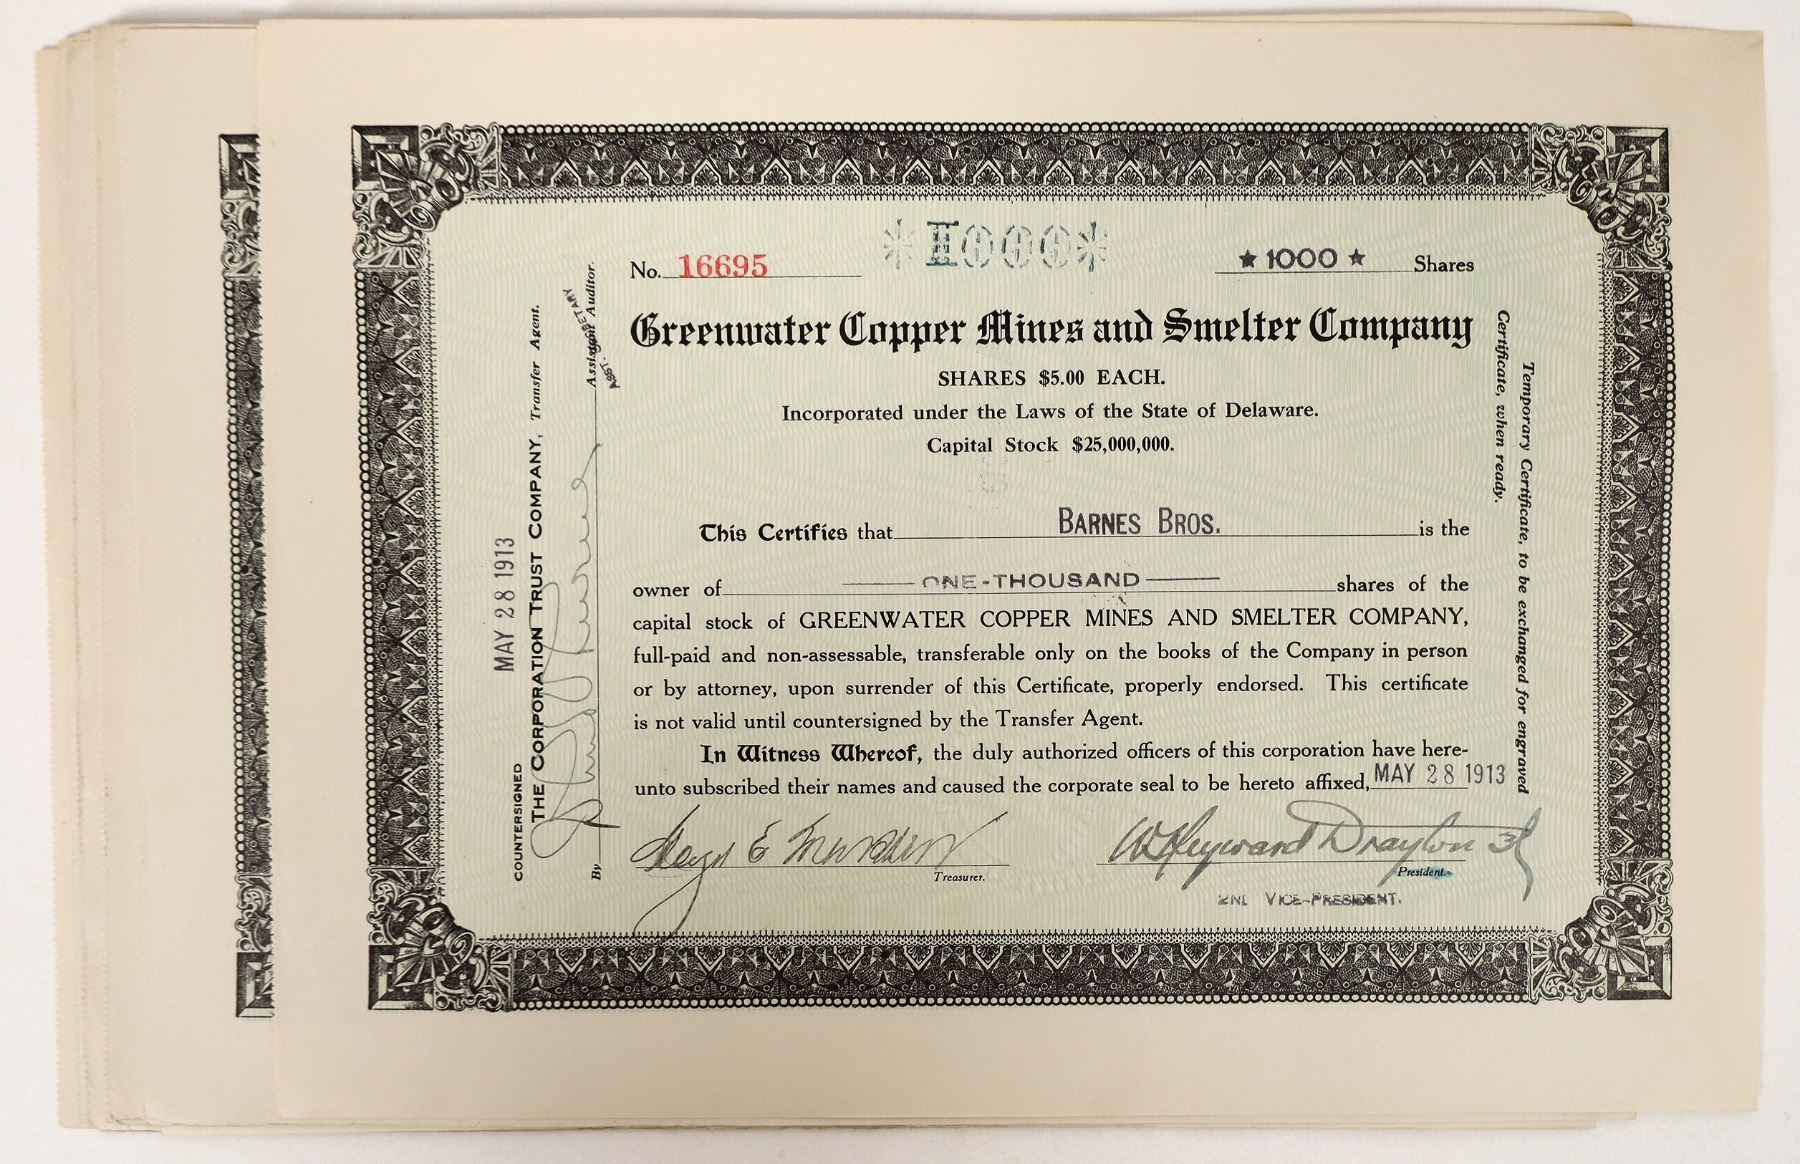 No. 16695
*1000*
★ 1000 ★ Shares
Greenwater Copper Mines and Smelter Company
SHARES $5.00 EACH.
Incorporated under the Laws of the State of Delaware.
Capital Stock $25,000,000.
This Certifies that BARNES BROS. is the
owner of ONE-THOUSAND shares of the
capital stock of GREENWATER COPPER MINES AND SMELTER COMPANY,
full-paid and non-assessable, transferable only on the books of the Company in person
or by attorney, upon surrender of this Certificate, properly endorsed. This certificate
is not valid until countersigned by the Transfer Agent.
In Witness Whereof, the duly authorized officers of this corporation have here-
unto subscribed their names and caused the corporate seal to be hereto affixed, MAY 28 1913
W Heyward Drayton 3d
Treasurer.
President.
2ND VICE-PRESIDENT.
MAY 28 1913
COUNTERSIGNED
THE CORPORATION TRUST COMPANY, Transfer Agent.
By
Assistant Auditor.
ASST. SECRETARY
Temporary Certificate, to be exchanged for engraved
Certificate, when ready.